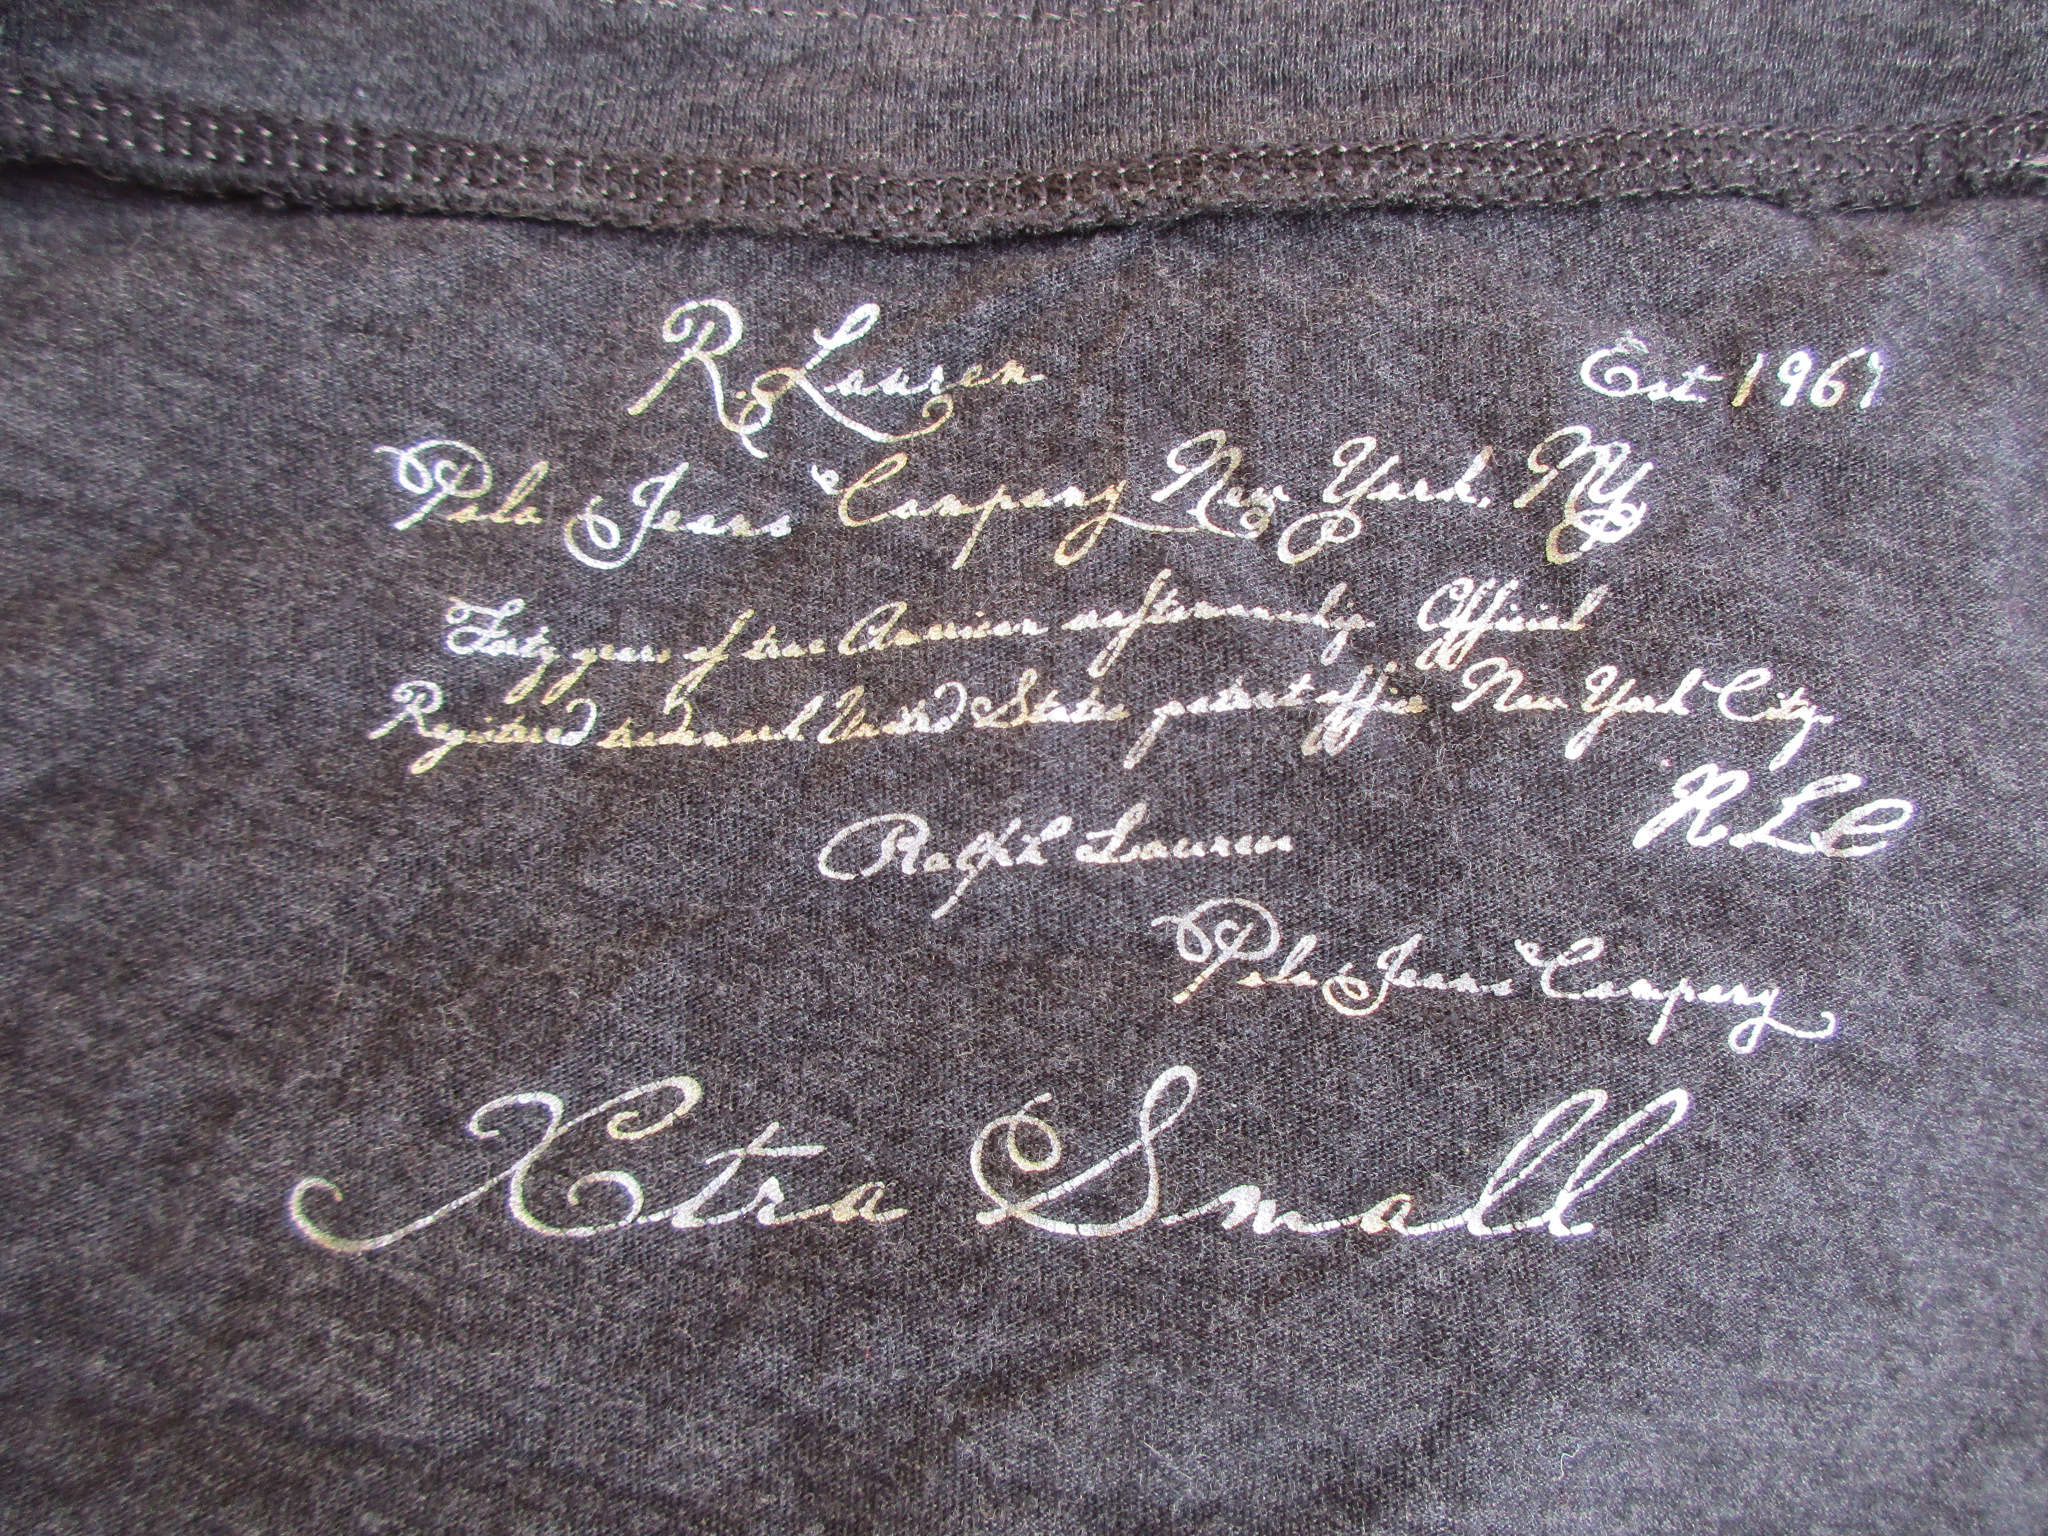 R. Lauren Est. 1967
Polo Jeans Company New York, NY
Forty years of true American craftsmanship Official
Registered trademark United States patent office New York City
R.L.C
Ralph Lauren
Polo Jeans Company
Xtra Small